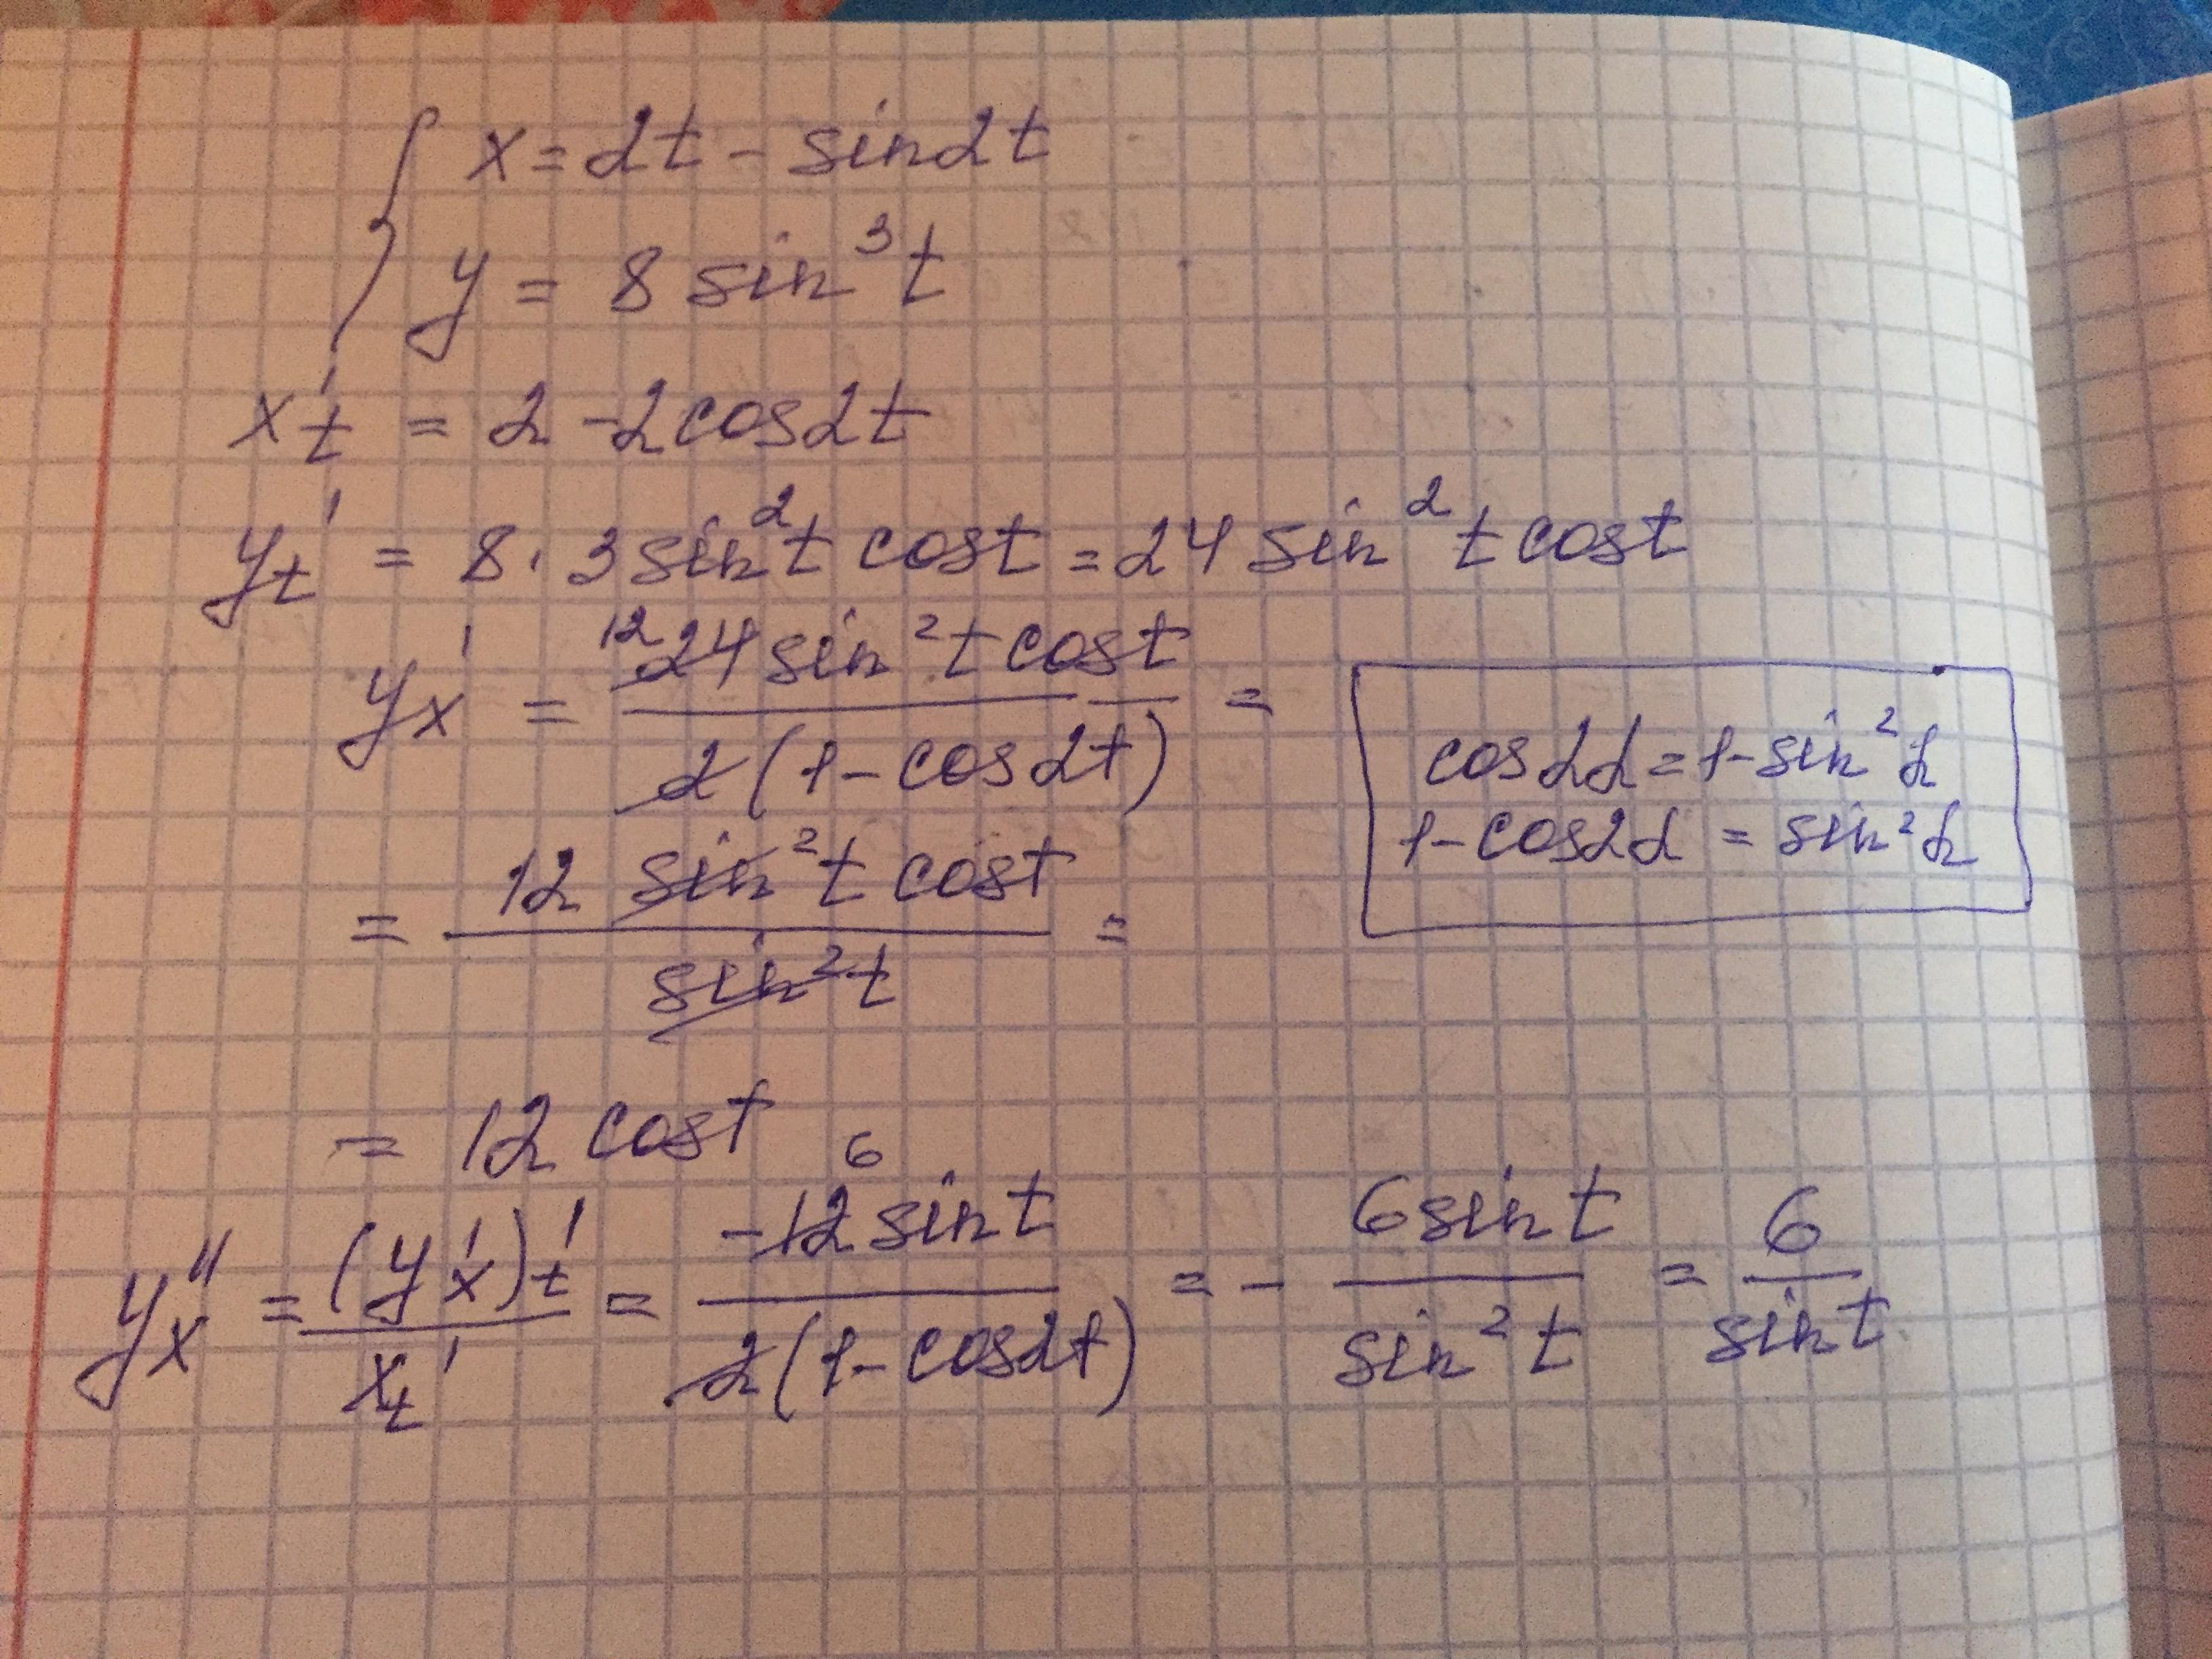 { x = 2t - sin2t
y = 8 sin³t
x't = 2 - 2cos2t
yt' = 8 · 3 sin²t cost = 24 sin²t cost
yx' = 12 24 sin²t cost / 2(1 - cos2t) =
cos2α = 1 - sin²α
1 - cos2α = sin²α
= 12 sin²t cost / sin²t =
= 12 cost
yx'' = (y'x)'t / xt' = -12 6 sint / 2(1 - cos2t) = - 6sint / sin²t = 6 / sint